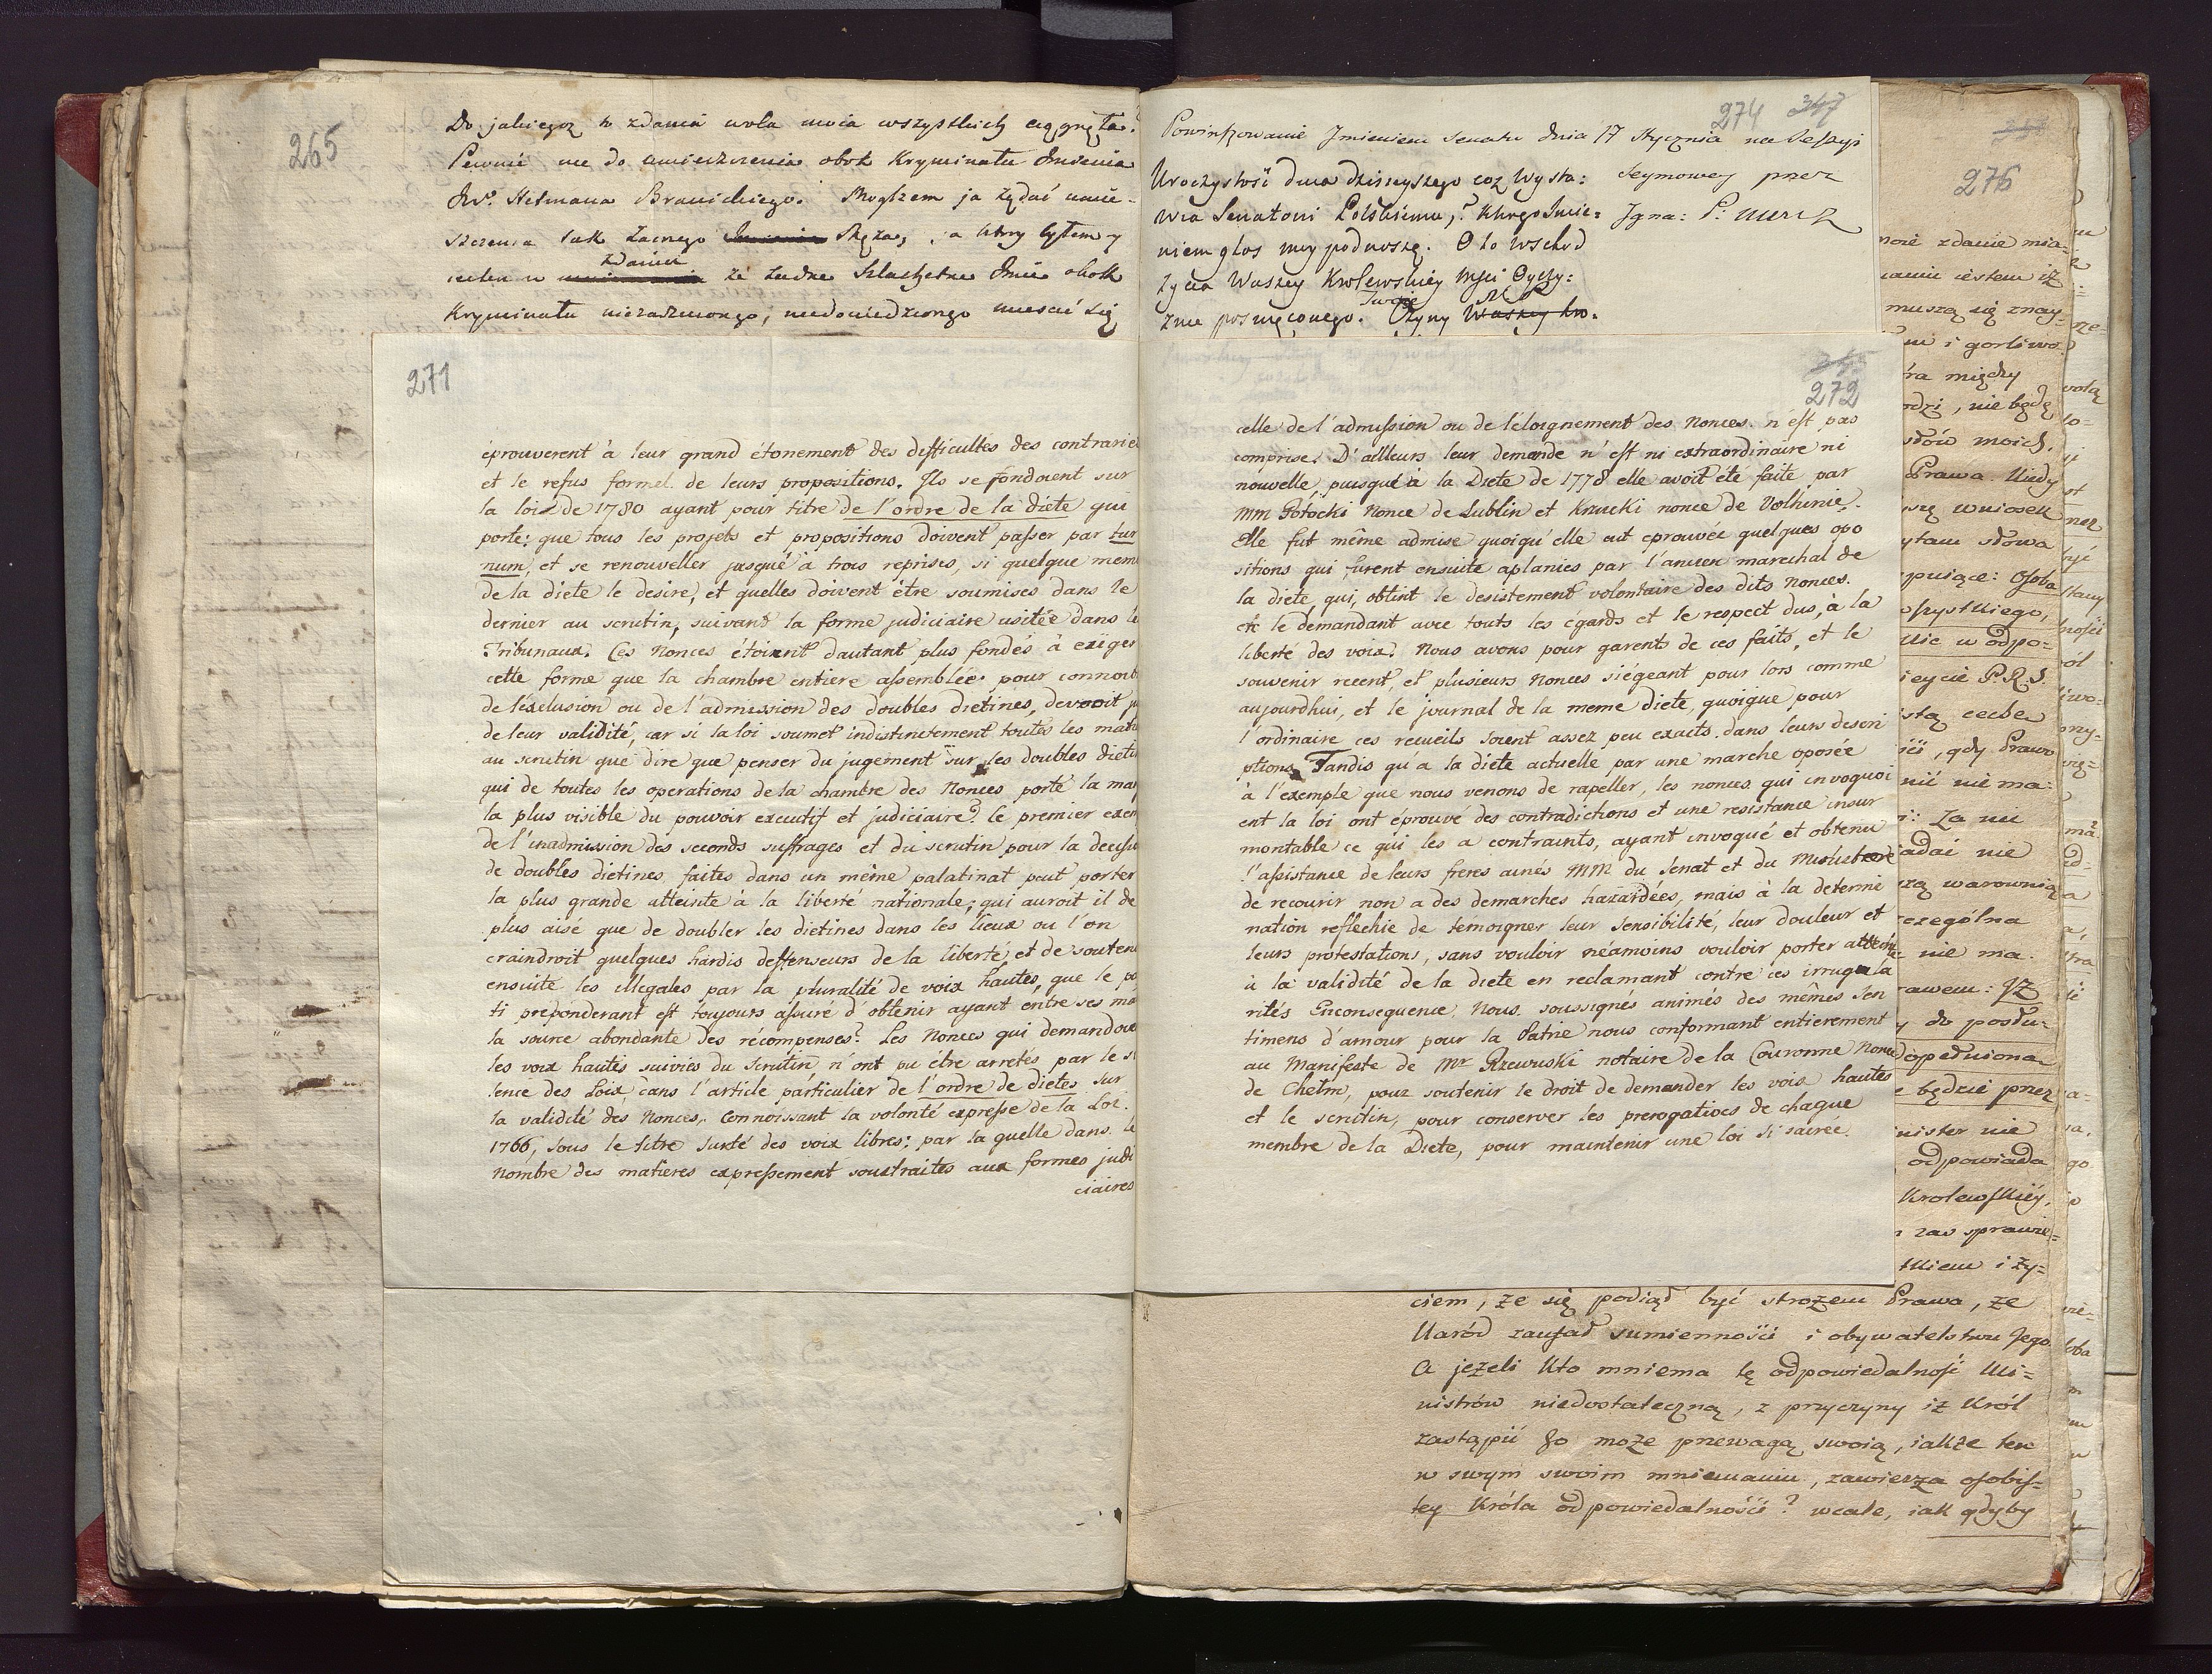 265
Do jakiegoż to zdania wola moia wszystkich ciągnęła?
Pewnie nie do umieszczenia obok Kryminału Imienia
JW. Hetmana Branickiego. Mogłżem ja żądać umie-
szczenia tak zacnego Męża, a który byłem y
iestem w zdaniu że żadne Szlachetne Imie obok
Kryminału niezadzonego, niedowiedzionego mieścić się
271
éprouverent à leur grand étonement des difficultes des contrarie
et le refus formel de leurs propositions. Ils se fondoient sur
la loi de 1780 ayant pour titre de l'ordre de la diéte qui
porte: que tous les projets et propositions doivent passer par tur
num, et se renouveller jusqué à trois reprises, si quelque mem
de la diete le desire, et quelles doivent étre soumises dans le
dernier au scrutin, suivant la forme judiciaire usitée dans le
Tribunaux. Ces Nonces étoient dautant plus fondés à exiger
cette forme que la chambre entiere assemblée pour connoit
de l'éxclusion ou de l'admission des doubles dietines, devroit
de leur validité, car si la loi soumet indistinctement toutes les mati
au scrutin que dire que penser du jugement sur les doubles dieti
qui de toutes les operations de la chambre des Nonces porte la mar
la plus visible du pouvoir executif et judiciaire? Le premier exem
de l'inadmission des seconds suffrages et du scrutin pour la decisi
de doubles dietines faites dans un même palatinat peut porter
la plus grande atteinte à la liberté nationale; qui auroit il de
plus aisé que de doubler les dietines dans les lieux ou l'on
craindroit quelques hardis deffenseurs de la liberté, et de souten
ensuite les illegales par la pluralité de voix hautes, que le pa
ti préponderant est toujours assuré d'obtenir ayant entre ses ma
la source abondante des récompenses? Les Nonces qui demandoie
les voix hautes suivies du scrutin, n'ont pu étre arretés par le si
lence des Loix, dans l'article particulier de l'ordre de dietes sur
la validité des Nonces, connoissant la volonté expresse de la Loi
1766, sous le titre sureté des voix libres: par la quelle dans le
nombre des matieres expressement soustraites aux formes judi
ciaires
274 347
Powinszowanie Imieniem Senatu dnia 17 Stycznia na Sessyi
Seymowey przez
Igna: P:
Uroczystość dnia dzisieyszego coż wysta:
wia Senatowi Polskiemu,? którego Imie:
niem głos moy podnoszę. Oto wschod
życia Waszey Krolewskiey Mści Oyczy:
znie poswięconego. Twoie Czyny Waszey Kro:
272
celle de l'admission ou de l'éloignement des Nonces n'est pas
comprise. D'ailleurs leur demande n'est ni extraordinaire ni
nouvelle, puisque à la Diete de 1778 elle avoit été faite par
MM Potocki Nonce de Lublin et Krucki nonce de Volhinie.
Elle fut même admise quoiqu'elle eut eprouvée quelques opo
sitions qui furent ensuite aplanies par l'ancien marechal de
la diete qui, obtint le desistement volontaire des dits nonces.
en le demandant avec touts les egards et le respect dus, à la
liberté des voix. Nous avons pour garents de ces faits, et le
souvenir recent, et plusieurs nonces siégeant pour lors comme
aujourdhui, et le journal de la meme diete, quoique pour
l'ordinaire ces recueils soient assez peu exacts dans leurs descri
ptions. Tandis qu'a la diete actuelle par une marche oposée
à l'exemple que nous venons de rapeller, les nonces qui invoquoi
ent la loi ont éprouvé des contradictions et une resistance insur
montable ce qui les a contraints, ayant invoqué et obtenu
l'assistance de leurs freres ainés MM du Senat et du Ministere
de recourir non a des demarches hazardées, mais à la determi
nation reflechie de témoigner leur sensibilité, leur douleur et
leurs protestations, sans vouloir néamoins vouloir porter atteinte
à la validité de la diete en reclamant contre ces irrugula
rités Enconsequence, Nous soussignés animés des mêmes sen
timens d'amour pour la Patrie nous conformant entierement
au Manifeste de Mr Rzewuski notaire de la Couronne Nonce
de Chelm, pour soutenir le droit de demander les voix hautes
et le scrutin, pour conserver les prerogatives de chaque
membre de la Diete, pour maintenir une loi si sacrée
276
moie zdanie mia-
iestem iż
muszą się znay-
i gorliwo
między
nie będę
słów moich.
Prawa. Kiedy
wniosek
słowa
Osoba
w odpo-
P.R.S.
gdy Prawo
nie ma:
Za nic
nie
warownią
szczególna
nie ma.
Iż
do posłu-
będzie przez
nie
odpowiada
Krolewskiéy,
zaw sprawie-
i ży-
ciem, że się podiął być strożem Prawa, że
Naród zaufał sumienności i obywatelstwu Jego.
A jeżeli kto mniema tę odpowiedalność Mi-
nistrów niedostateczną, z przyczyny iż Król
zastąpić go może przewagą swoią, iakże ten
w swym swoim mniemaniu, zawierza osobis-
tey Króla odpowiedalności? wcale, iak gdyby